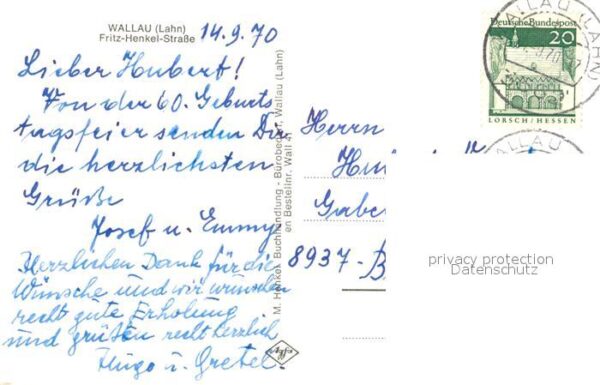 WALLAU (Lahn)
Fritz-Henkel-Straße
14.9.70
Lieber Hubert!
Von der 60. Geburts
tagsfeier senden Dir
die herzlichsten
Grüße
Josef u. Emmy
Herzlichen Dank für die
Wünsche und wir wünschen
recht gute Erholung
und grüßen recht herzlich
Hugo u. Gretel.
M. Henkel, Buchhandlung - Bürobedarf, Wallau (Lahn)
en Bestellnr. Wall
Agfa
Herrn
Gabe
8937-B
Deutsche Bundespost
20
LORSCH/HESSEN
WALLAU (LAHN)
WALLAU
privacy protection
Datenschutz